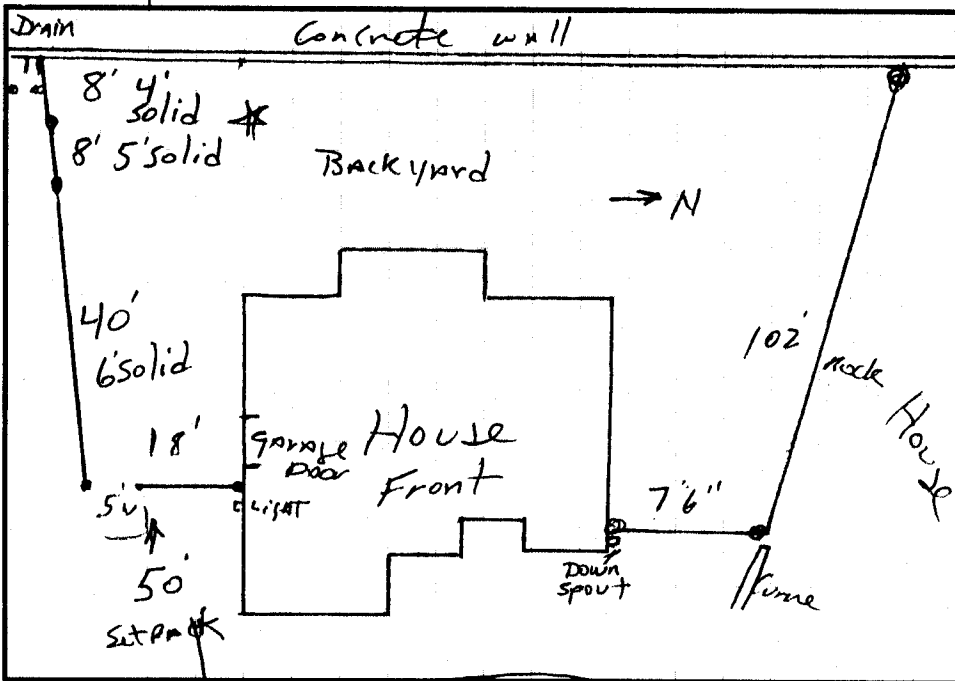 Drain
Concrete wall
8' 4'
solid
8' 5' solid
Backyard
N
40'
6' solid
102'
Rock
House
18'
Garage
Door
House
Front
Light
5'
7'6"
50'
Down
spout